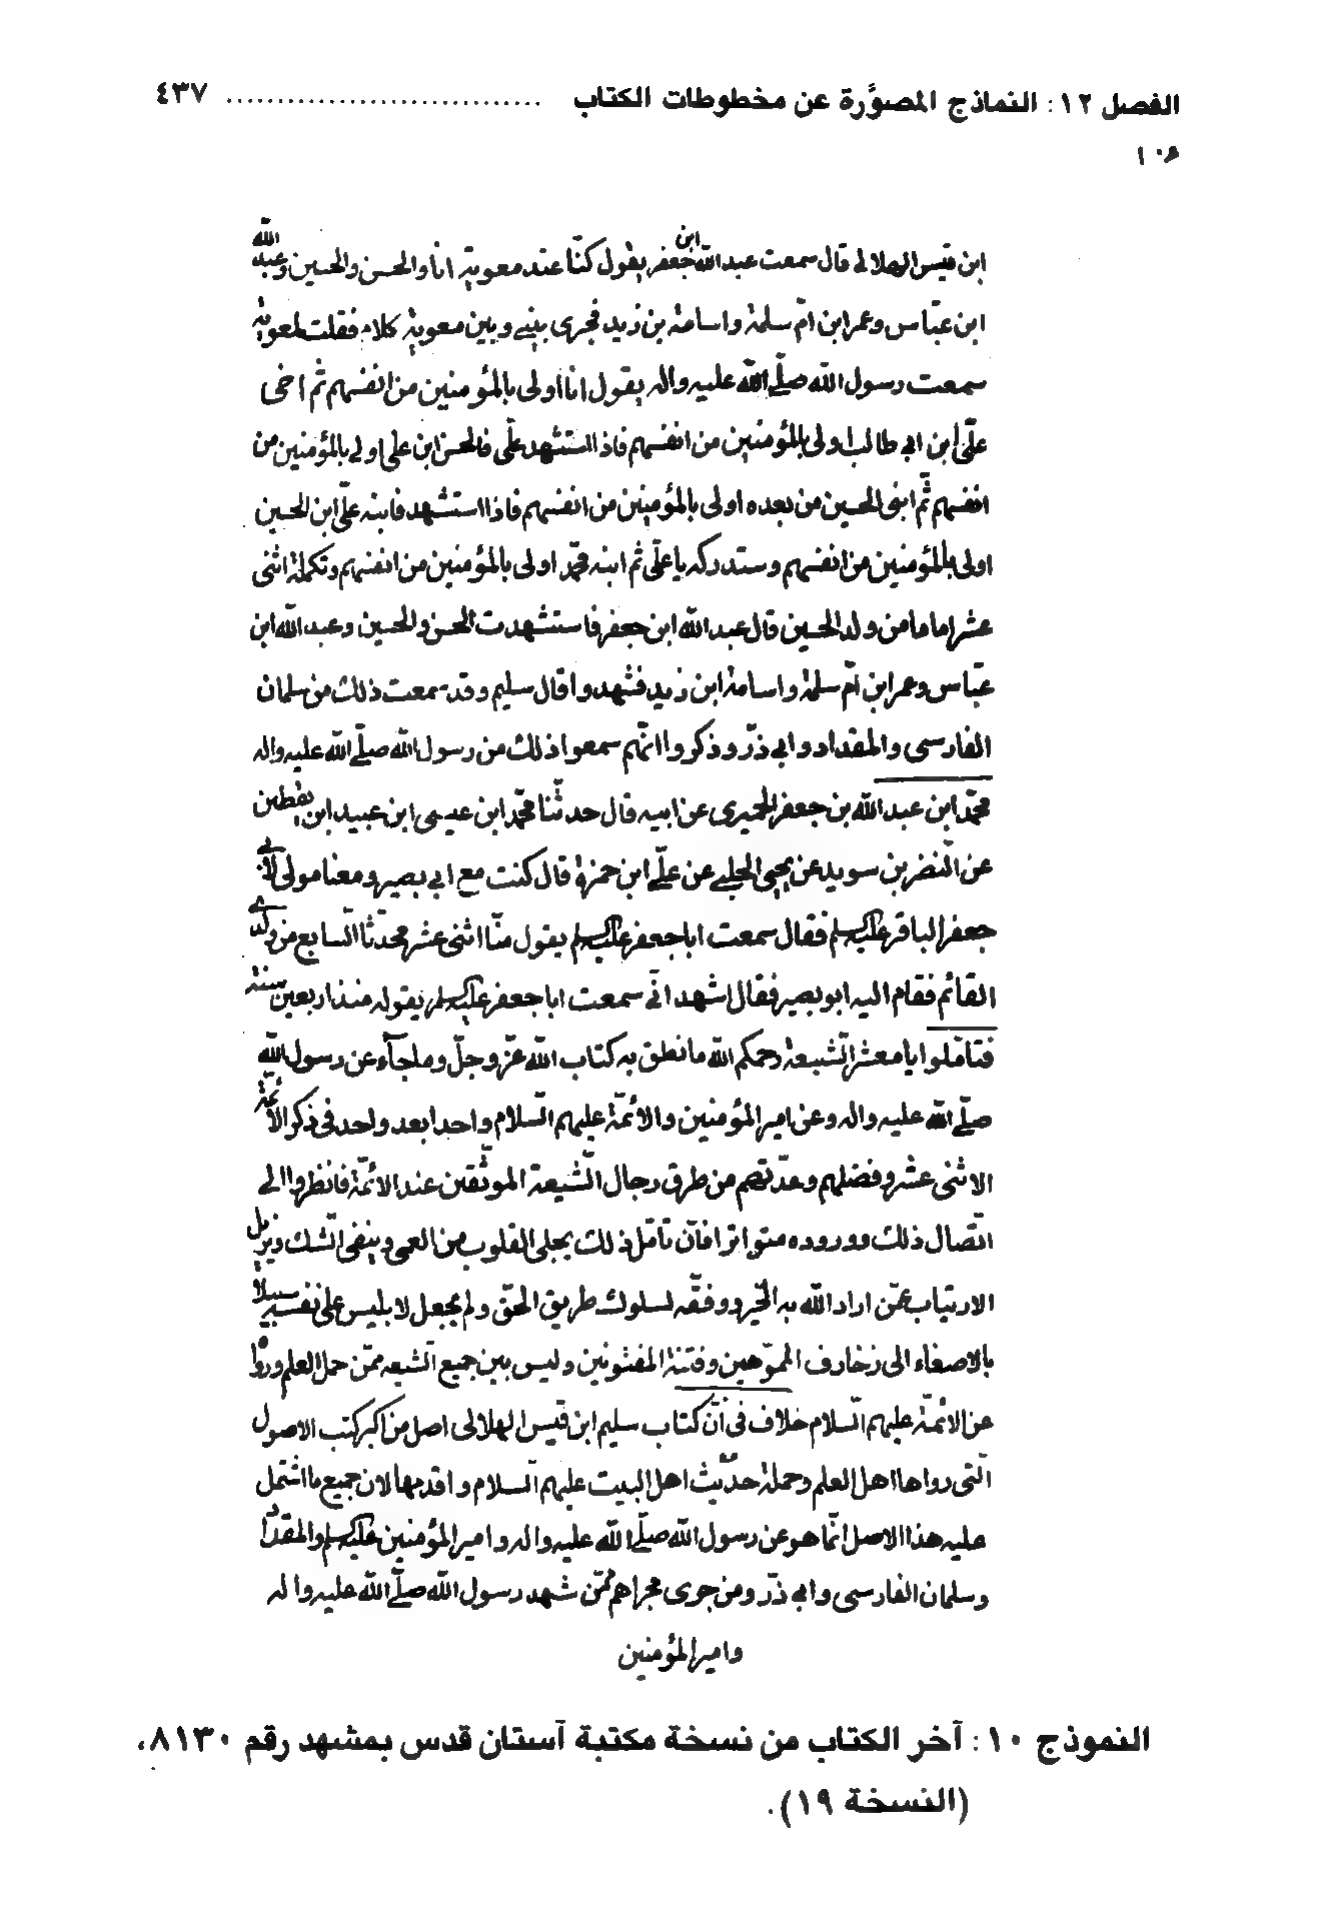 الفصل ١٢: النماذج المصوَّرة عن مخطوطات الكتاب .............................. ٤٣٧
ابن قيس الهلالي قال سمعت عبد الله ابن جعفر يقول كنّا عند معوية انا والحسن والحسين وعبد الله
ابن عبّاس وعمر ابن امّ سلمة واسامة بن زيد فجرى بيني وبين معوية كلام فقلت لمعوية
سمعت رسول الله صلّى الله عليه واله يقول انا اولى بالمؤمنين من انفسهم ثم اخى
علىّ ابن ابي طالب اولى بالمؤمنين من انفسهم فاذا استشهد علّى فالحسن ابن على اولى بالمؤمنين من
انفسهم ثّم ابنى الحسين من بعده اولى بالمؤمنين من انفسهم فاذا استشهد فابنه علّى ابن الحسين
اولى بالمؤمنين من انفسهم وستدركه يا علّى ثم ابنه محمّد اولى بالمؤمنين من انفسهم وتكملة اثنى
عشر اماما من ولد الحسين قال عبد الله ابن جعفر فاستشهدت الحسن والحسين وعبد الله ابن
عبّاس وعمر ابن امّ سلمة واسامة ابن زيد فشهدوا قال سليم وقد سمعت ذلك من سلمان
الفارسى والمقداد وابي ذرّ وذكروا انّهم سمعوا ذلك من رسول الله صلّى الله عليه واله
محمّد ابن عبد الله بن جعفر الحميرى عن ابيه قال حدثّنا محمّد ابن عيسى ابن عبيد ابن يقطين
عن النّضر بن سويد عن يحيى الحلبي عن علّي ابن حمزة قال كنت مع ابي بصير ومعنا مولى لابي
جعفر الباقر عليه السلم فقال سمعت ابا جعفر عليه السلم يقول منّا اثنى عشر محدّثا السّابع من ولدي
القائم فقام اليه ابو بصير فقال اشهد انّى سمعت ابا جعفر عليه السلم يقوله منذ اربعين سنة
فتامّلوا يا معشر الشّيعة رحمكم الله ما نطق به كتاب الله عزّ وجلّ وما جآء عن رسول الله
صلّى الله عليه واله وعن امير المؤمنين والائمّة عليهم السّلام واحدا بعد واحد فى ذكر الائمّة
الاثنى عشر وفضلهم وعدّتهم من طرق رجال الشّيعة الموثّقين عند الائمّة فانظروا الى
اتّصال ذلك ووروده متواترا فانّ تامّل ذلك يجلى القلوب من العمى وينفى الشّك ويزيل
الارتياب عمّن اراد الله به الخير ووفقّه لسلوك طريق الحقّ ولم يجعل لابليس على نفسه سبيلا
بالاصغاء الى زخارف المموّهين وفتنة المفتونين وليس بين جميع الشّيعه ممّن حمل العلم ورواه
عن الائمّة عليهم السّلام خلاف فى انّ كتاب سليم ابن قيس الهلالى اصل من اكبر كتب الاصول
الّتى رواها اهل العلم وحملة حديث اهل البيت عليهم السلام واقدمها لان جميع ما اشتمل
عليه هذا الاصل انّما هو عن رسول الله صلّى الله عليه واله وامير المؤمنين عليه السلم والمقداد
وسلمان الفارسى وابي ذرّ ومن جرى مجراهم ممّن شهد رسول الله صلّى الله عليه واله
وامير المؤمنين
النموذج ١٠: آخر الكتاب من نسخة مكتبة آستان قدس بمشهد رقم ٨١٣٠،
(النسخة ١٩).